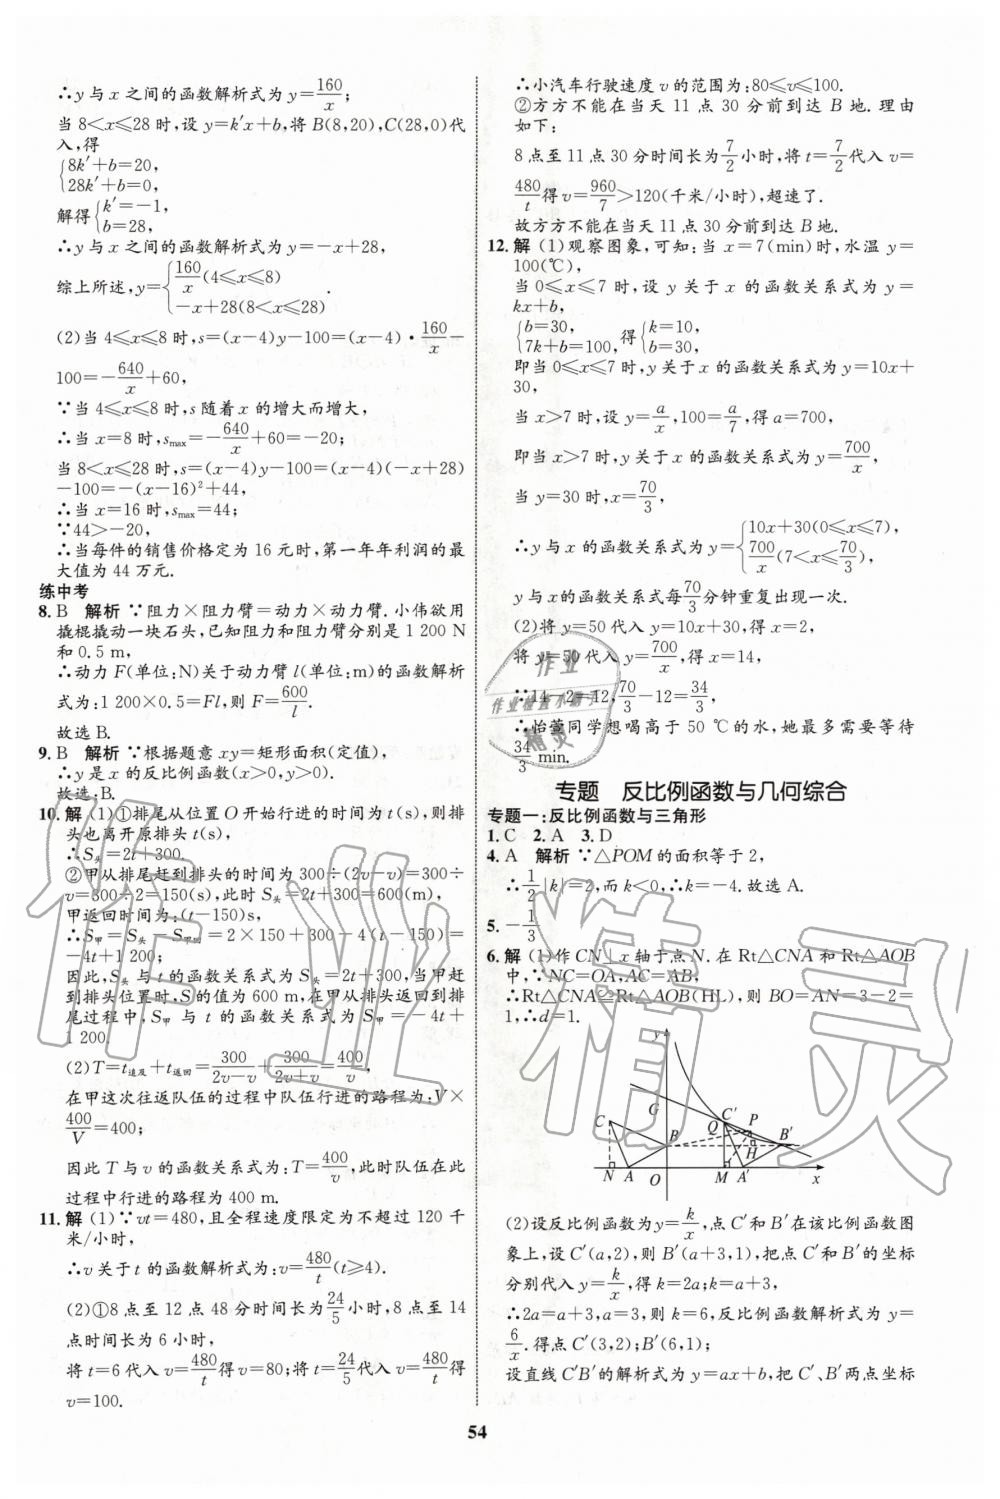 ∴y与x之间的函数解析式为y=160/x;
当8<x≤28时,设y=k′x+b,将B(8,20),C(28,0)代
入,得
{8k′+b=20,
28k′+b=0,
解得{k′=-1,
b=28,
∴y与x之间的函数解析式为y=-x+28,
综上所述,y={160/x(4≤x≤8)
-x+28(8<x≤28).
(2)当4≤x≤8时,s=(x-4)y-100=(x-4)·160/x-
100=-640/x+60,
∵当4≤x≤8时,s随着x的增大而增大,
∴当x=8时,smax=-640/x+60=-20;
当8<x≤28时,s=(x-4)y-100=(x-4)(-x+28)
-100=-(x-16)²+44,
∴当x=16时,smax=44;
∵44>-20,
∴当每件的销售价格定为16元时,第一年年利润的最
大值为44万元.
练中考
8.B 解析 ∵阻力×阻力臂=动力×动力臂.小伟欲用
撬棍撬动一块石头,已知阻力和阻力臂分别是1 200 N
和0.5 m,
∴动力F(单位:N)关于动力臂l(单位:m)的函数解析
式为:1 200×0.5=Fl,则F=600/l.
故选B.
9.B 解析 ∵根据题意xy=矩形面积(定值),
∴y是x的反比例函数(x>0,y>0).
故选:B.
10.解 (1)①排尾从位置O开始行进的时间为t(s),则排
头也离开原排头t(s),
∴S头=2t+300.
②甲从排尾赶到排头的时间为300÷(2v-v)=300÷
v=300÷2=150(s),此时S头=2t+300=600(m),
甲返回时间为:(t-150)s,
∴S甲=S头-S甲回=2×150+300-4(t-150)=
-4t+1 200;
因此,S头与t的函数关系式为S头=2t+300,当甲赶
到排头位置时,S的值为600 m,在甲从排头返回到排
尾过程中,S甲与t的函数关系式为S甲=-4t+
1 200.
(2)T=t追及+t返回=300/(2v-v)+300/(2v+v)=400/v,
在甲这次往返队伍的过程中队伍行进的路程为:V×
400/V=400;
因此T与v的函数关系式为:T=400/v,此时队伍在此
过程中行进的路程为400 m.
11.解 (1)∵vt=480,且全程速度限定为不超过120千
米/小时,
∴v关于t的函数解析式为:v=480/t(t≥4).
(2)①8点至12点48分时间长为24/5小时,8点至14
点时间长为6小时,
将t=6代入v=480/t得v=80;将t=24/5代入v=480/t得
v=100.
∴小汽车行驶速度v的范围为:80≤v≤100.
②方方不能在当天11点30分前到达B地.理由
如下:
8点至11点30分时间长为7/2小时,将t=7/2代入v=
480/t得v=960/7>120(千米/小时),超速了.
故方方不能在当天11点30分前到达B地.
12.解 (1)观察图象,可知:当x=7(min)时,水温y=
100(℃),
当0≤x≤7时,设y关于x的函数关系式为y=
kx+b,
{b=30,
7k+b=100, 得{k=10,
b=30,
即当0≤x≤7时,y关于x的函数关系式为y=10x+
30,
当x>7时,设y=a/x,100=a/7,得a=700,
即当x>7时,y关于x的函数关系式为y=700/x,
当y=30时,x=70/3,
∴y与x的函数关系式为y={10x+30(0≤x≤7),
700/x(7<x≤70/3),
y与x的函数关系式每70/3分钟重复出现一次.
(2)将y=50代入y=10x+30,得x=2,
将y=50代入y=700/x,得x=14,
∵14-2=12,70/3-12=34/3,
∴怡萱同学想喝高于50 ℃的水,她最多需要等待
34/3 min.
专题 反比例函数与几何综合
专题一:反比例函数与三角形
1.C 2.A 3.D
4.A 解析 ∵△POM的面积等于2,
∴1/2|k|=2,而k<0,∴k=-4.故选A.
5.-1/3
6.解 (1)作CN⊥x轴于点N.在Rt△CNA和Rt△AOB
中,∵NC=OA,AC=AB,
∴Rt△CNA≌Rt△AOB(HL),则BO=AN=3-2=
1,∴d=1.
y
G
C′
Q
P
C
B
H
B′
N A O M A′ x
(2)设反比例函数为y=k/x,点C′和B′在该比例函数图
象上,设C′(a,2),则B′(a+3,1),把点C′和B′的坐标
分别代入y=k/x,得k=2a;k=a+3,
∴2a=a+3,a=3,则k=6,反比例函数解析式为y=
6/x.得点C′(3,2);B′(6,1);
设直线C′B′的解析式为y=ax+b,把C′、B′两点坐标
54
作业精灵
作业
精灵